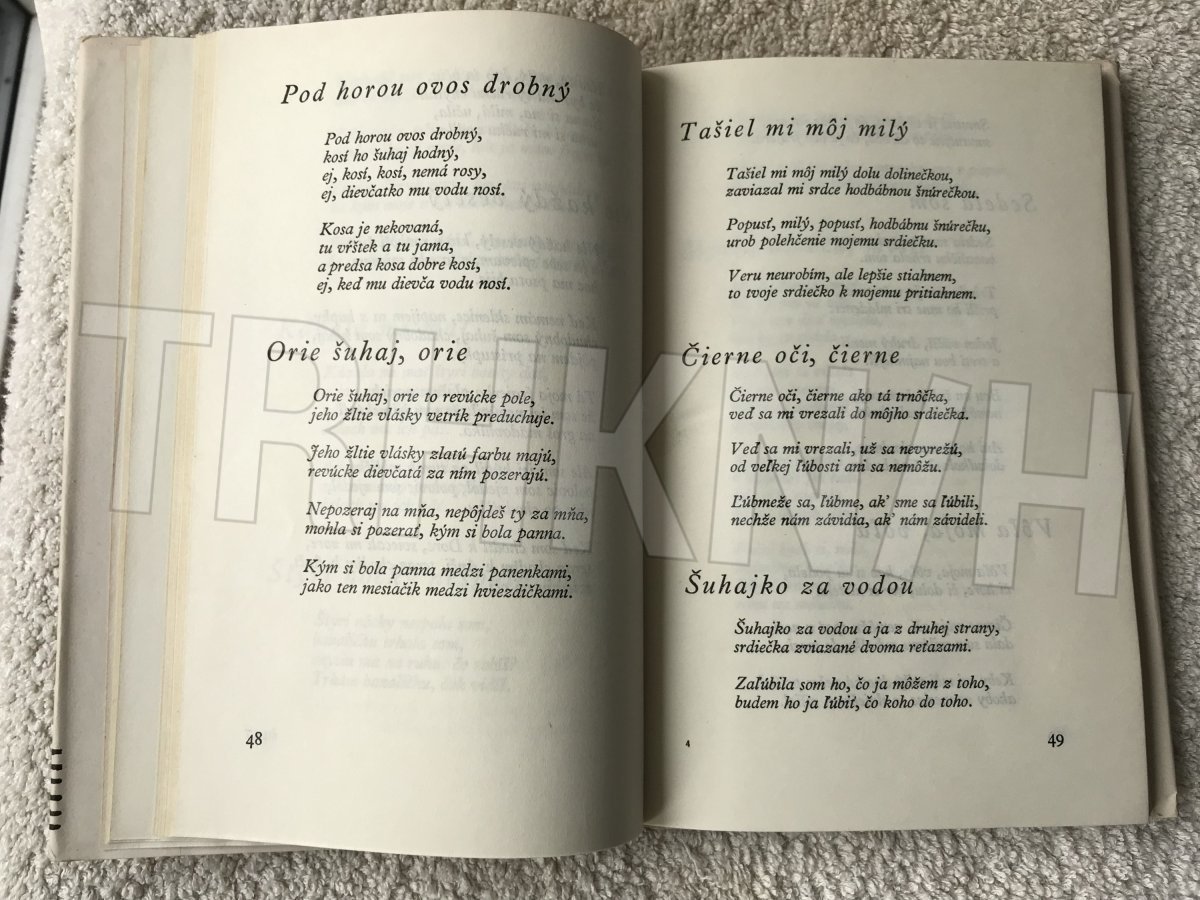 Pod horou ovos drobný
Pod horou ovos drobný,
kosí ho šuhaj hodný,
ej, kosí, kosí, nemá rosy,
ej, dievčatko mu vodu nosí.
Kosa je nekovaná,
tu vŕštek a tu jama,
a predsa kosa dobre kosí,
ej, keď mu dievča vodu nosí.
Orie šuhaj, orie
Orie šuhaj, orie to revúcke pole,
jeho žltie vlásky vetrík preduchuje.
Jeho žltie vlásky zlatú farbu majú,
revúcke dievčatá za ním pozerajú.
Nepozeraj na mňa, nepôjdeš ty za mňa,
mohla si pozerať, kým si bola panna.
Kým si bola panna medzi panenkami,
jako ten mesiačik medzi hviezdičkami.
48
Tašiel mi môj milý
Tašiel mi môj milý dolu dolinečkou,
zaviazal mi srdce hodbábnou šnúrečkou.
Popusť, milý, popusť, hodbábnu šnúrečku,
urob polehčenie mojemu srdiečku.
Veru neurobím, ale lepšie stiahnem,
to tvoje srdiečko k mojemu pritiahnem.
Čierne oči, čierne
Čierne oči, čierne ako tá trnôčka,
veď sa mi vrezali do môjho srdiečka.
Veď sa mi vrezali, už sa nevyrežú,
od veľkej ľúbosti ani sa nemôžu.
Ľúbmeže sa, ľúbme, ak' sme sa ľúbili,
nechže nám závidia, ak' nám závideli.
Šuhajko za vodou
Šuhajko za vodou a ja z druhej strany,
srdiečka zviazané dvoma reťazami.
Zaľúbila som ho, čo ja môžem z toho,
budem ho ja ľúbiť, čo koho do toho.
4
49